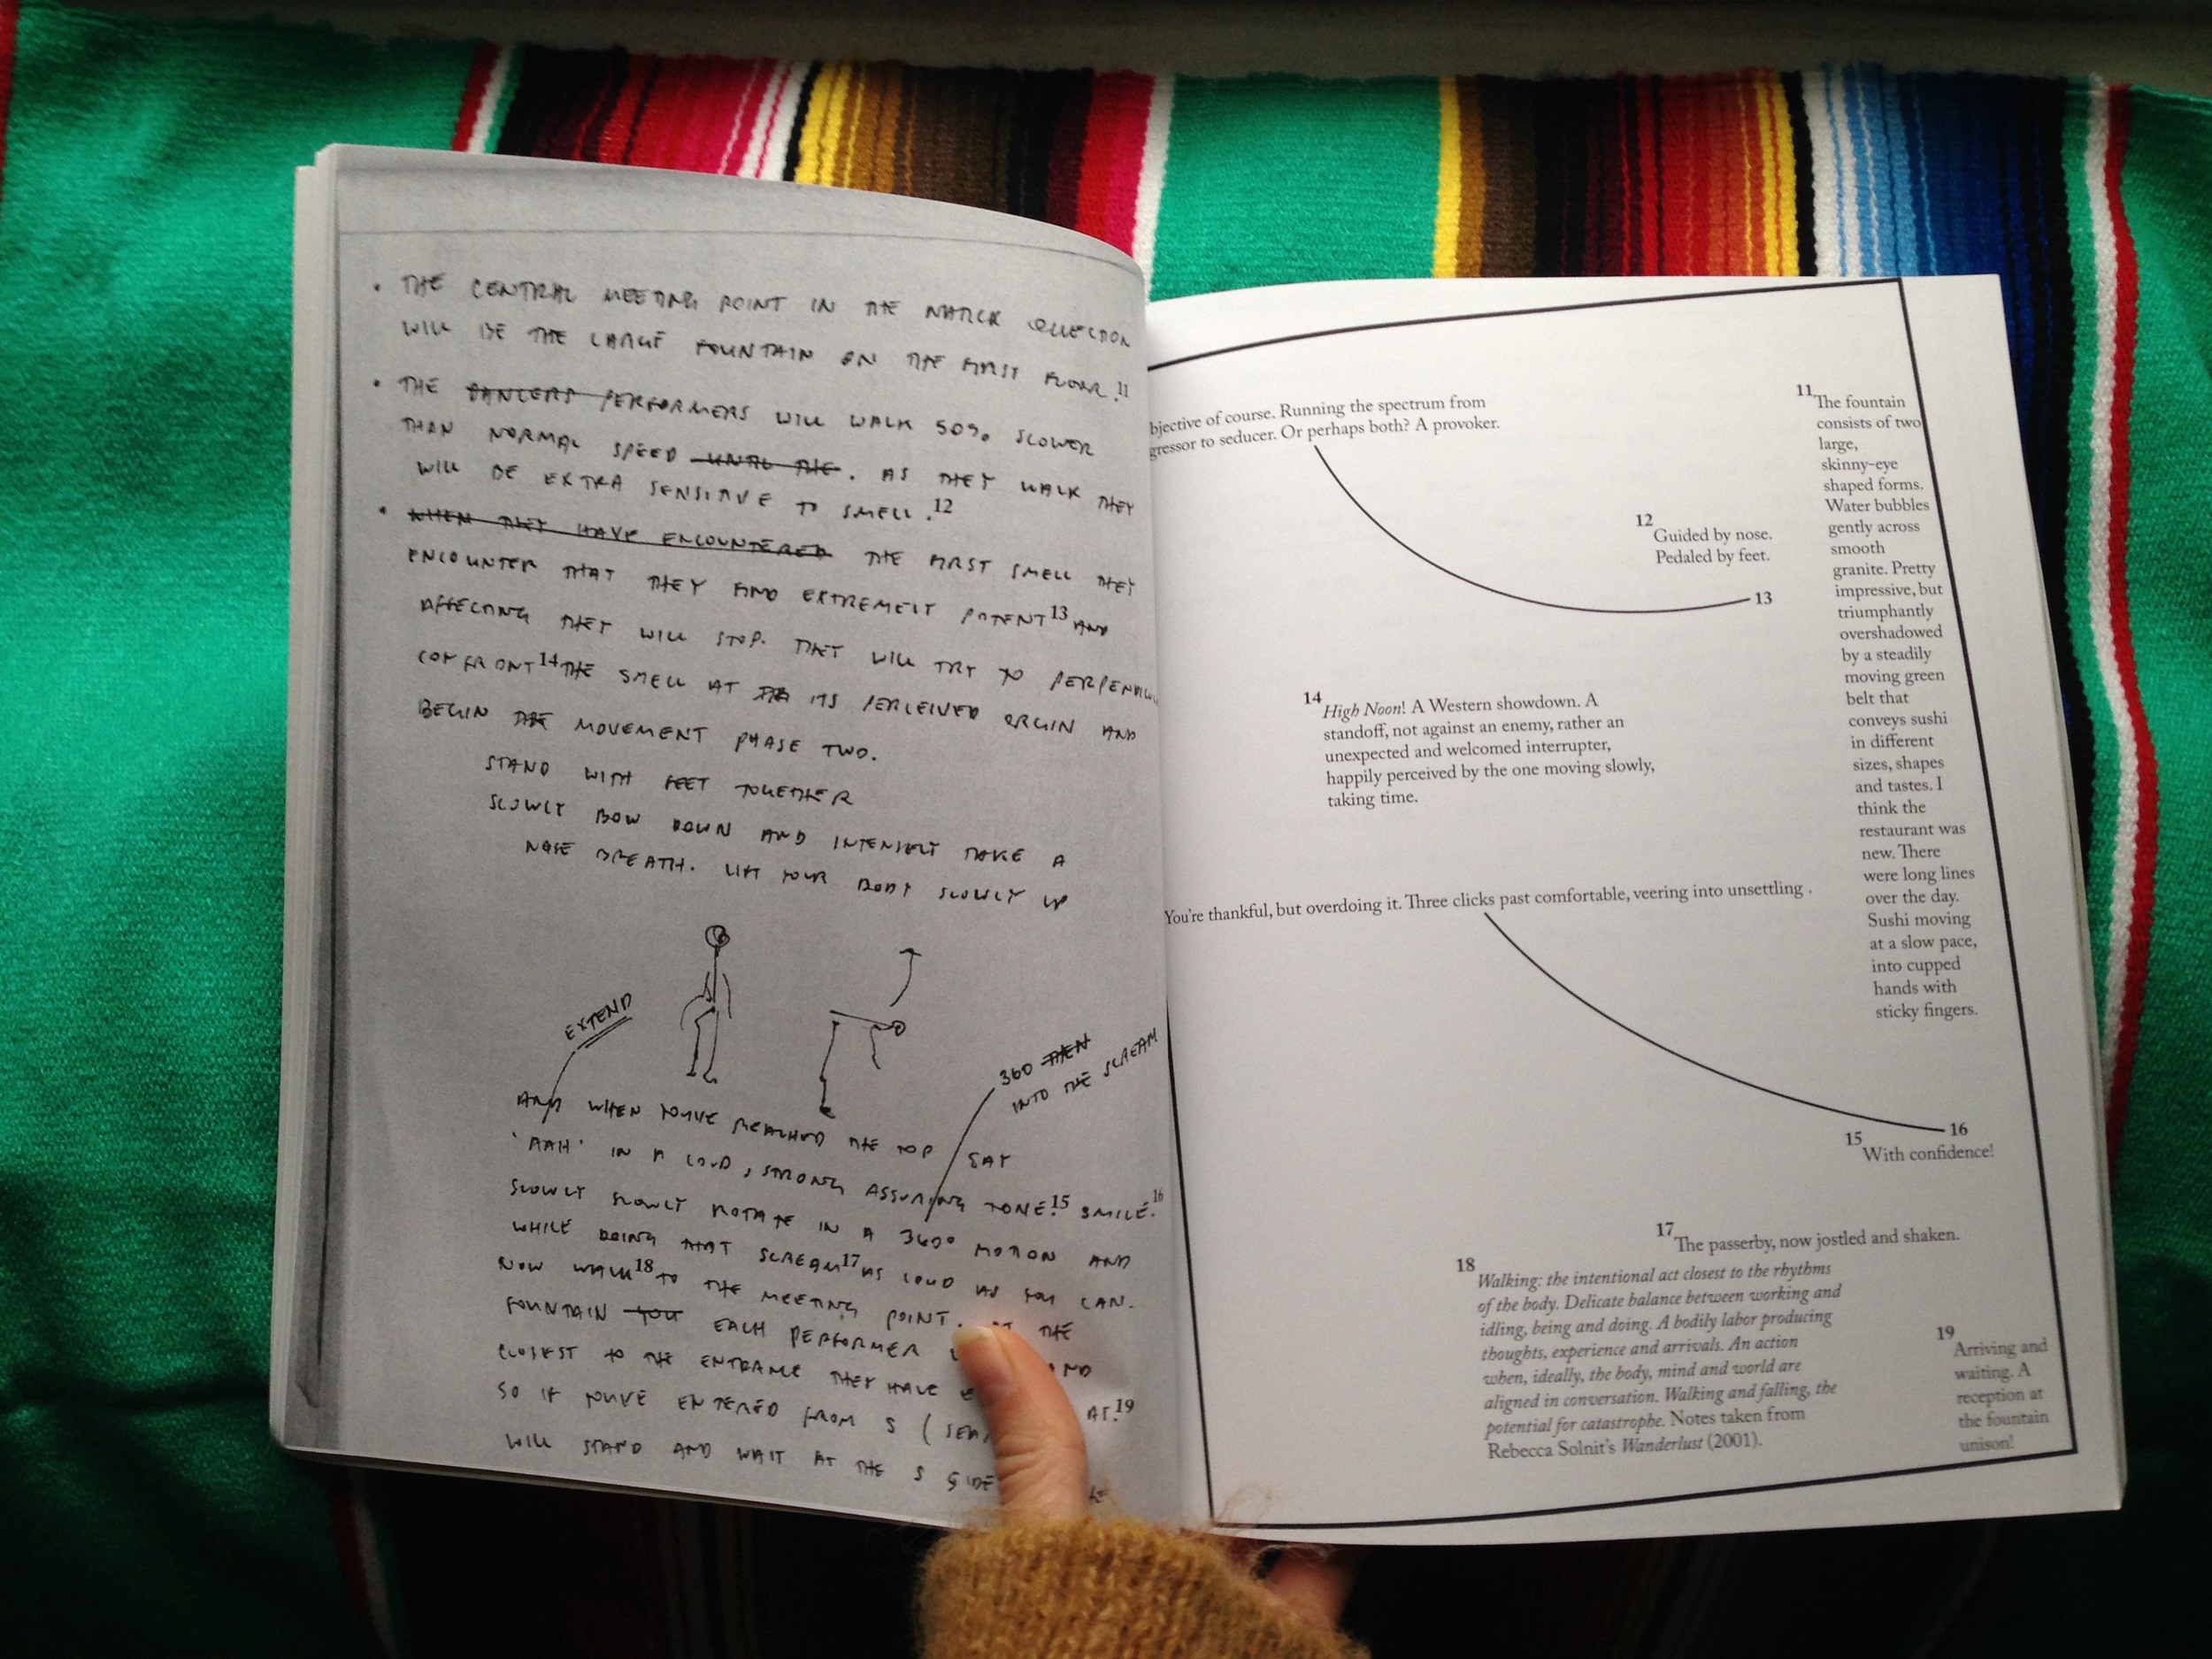 • THE CENTRAL MEETING POINT IN THE NATICK COLLECTION
WILL BE THE LARGE FOUNTAIN ON THE FIRST FLOOR.11
• THE DANCERS PERFORMERS WILL WALK 50% SLOWER
THAN NORMAL SPEED UNTIL THE. AS THEY WALK THEY
WILL BE EXTRA SENSITIVE TO SMELL.12
• WHEN THEY HAVE ENCOUNTERED THE FIRST SMELL THEY
ENCOUNTER THAT THEY FIND EXTREMELY POTENT13 AND
AFFECTING THEY WILL STOP. THEY WILL TRY TO
CONFRONT14 THE SMELL AT ITS PERCEIVED ORGIN AND
BEGIN THE MOVEMENT PHASE TWO.
STAND WITH FEET TOGETHER
SLOWLY BOW DOWN AND INTENSELY TAKE A
NOSE BREATH. LIFT YOUR BODY SLOWLY UP
EXTEND
360 THEN
INTO THE SCREAM
AND WHEN YOUVE REACHED THE TOP SAY
'AAH' IN A LOUD, STRONG ASSURING TONE.15 SMILE.16
SLOWLY SLOWLY ROTATE IN A 360° MOTION AND
WHILE DOING THAT SCREAM17 AS LOUD AS YOU CAN.
NOW WALK18 TO THE MEETING POINT. AT THE
FOUNTAIN YOU EACH PERFORMER AND
CLOSEST TO THE ENTRANCE THEY HAVE AT.19
SO IF YOUVE ENTERED FROM S (
WILL STAND AND WAIT AT THE S SIDE
bjective of course. Running the spectrum from
gressor to seducer. Or perhaps both? A provoker.
13
11 The fountain
consists of two
large,
skinny-eye
shaped forms.
Water bubbles
gently across
smooth
granite. Pretty
impressive, but
triumphantly
overshadowed
by a steadily
moving green
belt that
conveys sushi
in different
sizes, shapes
and tastes. I
think the
restaurant was
new. There
were long lines
over the day.
Sushi moving
at a slow pace,
into cupped
hands with
sticky fingers.
12 Guided by nose.
Pedaled by feet.
14 High Noon! A Western showdown. A
standoff, not against an enemy, rather an
unexpected and welcomed interrupter,
happily perceived by the one moving slowly,
taking time.
You're thankful, but overdoing it. Three clicks past comfortable, veering into unsettling .
16
15 With confidence!
17 The passerby, now jostled and shaken.
18 Walking: the intentional act closest to the rhythms
of the body. Delicate balance between working and
idling, being and doing. A bodily labor producing
thoughts, experience and arrivals. An action
when, ideally, the body, mind and world are
aligned in conversation. Walking and falling, the
potential for catastrophe. Notes taken from
Rebecca Solnit's Wanderlust (2001).
19 Arriving and
waiting. A
reception at
the fountain
unison!